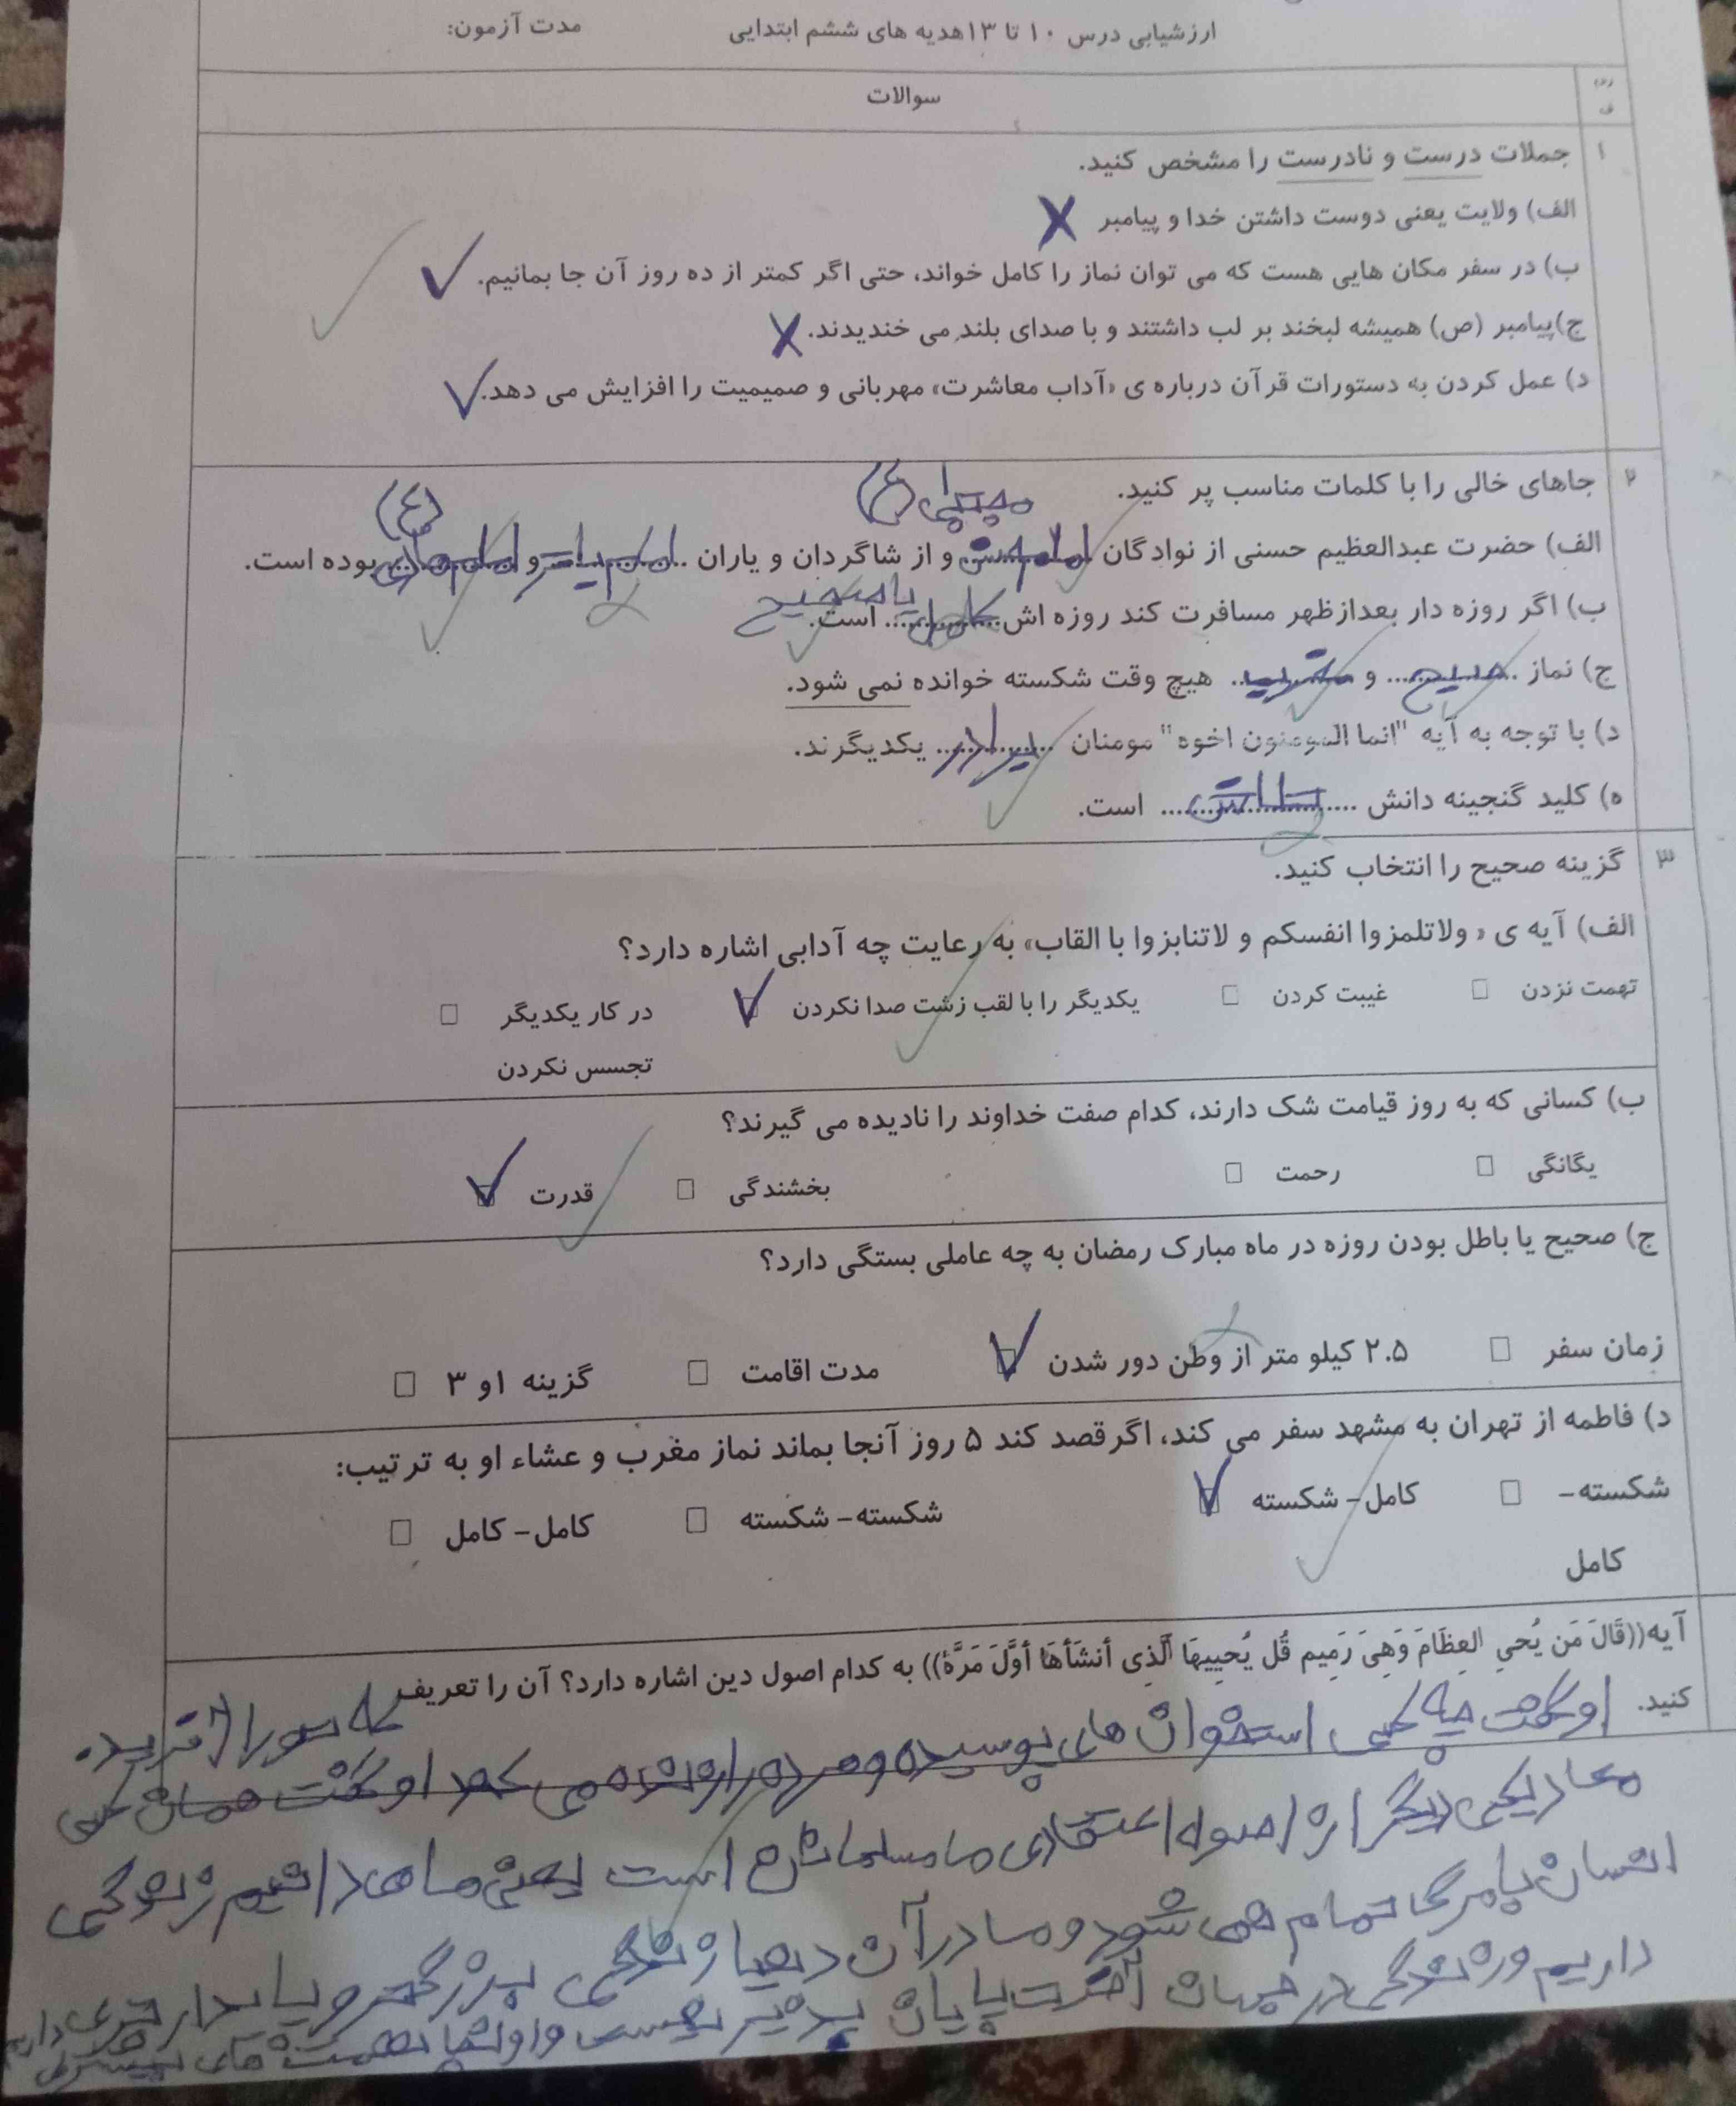 ارزشیابی درس ۱۰ تا ۱۳هدیه های ششم ابتدایی مدت آزمون:
ردی
ف
سوالات
۱ جملات درست و نادرست را مشخص کنید.
الف) ولایت یعنی دوست داشتن خدا و پیامبر
ب) در سفر مکان هایی هست که می توان نماز را کامل خواند، حتی اگر کمتر از ده روز آن جا بمانیم.
ج)پیامبر (ص) همیشه لبخند بر لب داشتند و با صدای بلند می خندیدند.
د) عمل کردن به دستورات قرآن درباره ی «آداب معاشرت» مهربانی و صمیمیت را افزایش می دهد.
۲ جاهای خالی را با کلمات مناسب پر کنید.
مجتبی(ع) (ع)
الف) حضرت عبدالعظیم حسنی از نوادگان امام حسن و از شاگردان و یاران امام باقر و امام هادی بوده است.
ب) اگر روزه دار بعدازظهر مسافرت کند روزه اش کامل یا صحیح است.
ج) نماز صبح و مغرب هیچ وقت شکسته خوانده نمی شود.
د) با توجه به آیه "انما المومنون اخوه" مومنان برادر یکدیگرند.
ه) کلید گنجینه دانش تلاش است.
۳ گزینه صحیح را انتخاب کنید.
الف) آیه ی « ولاتلمزوا انفسکم و لاتنابزوا با القاب» به رعایت چه آدابی اشاره دارد؟
تهمت نزدن غیبت کردن یکدیگر را با لقب زشت صدا نکردن در کار یکدیگر
تجسس نکردن
ب) کسانی که به روز قیامت شک دارند، کدام صفت خداوند را نادیده می گیرند؟
یگانگی رحمت بخشندگی قدرت
ج) صحیح یا باطل بودن روزه در ماه مبارک رمضان به چه عاملی بستگی دارد؟
زمان سفر ۲.۵ کیلو متر از وطن دور شدن مدت اقامت گزینه ۱و ۳
د) فاطمه از تهران به مشهد سفر می کند، اگر قصد کند ۵ روز آنجا بماند نماز مغرب و عشاء او به ترتیب:
شکسته- کامل- شکسته شکسته- شکسته کامل- کامل
کامل
آیه((قَالَ مَن یُحیِ العِظَامَ وَهِیَ رَمِیم قُل یُحیِیهَا اَلَّذِی أَنشَأَهَا أَوَّلَ مَرَّة)) به کدام اصول دین اشاره دارد؟ آن را تعریف
کنید. او گفت چه کسی استخوان های پوسیده و مرده را زنده می کند او گفت همان کسی
که تو را آفرید.
معاد یکی دیگر از اصول اعتقادی ما مسلمانان است یعنی ما
انسان با مرگ تمام نمی شود و ما در آن دنیا زندگی بزرگتر و پایدار تری داریم
داریم و زندگی در جهان آخرت پایان پذیر نیست و